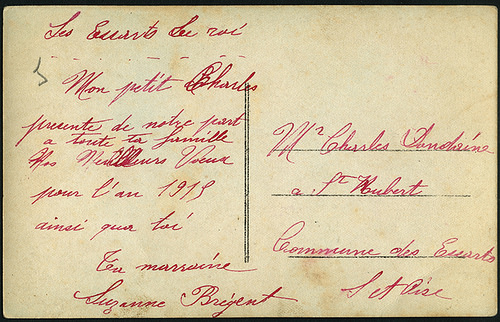 Les Essarts le roi
Mon petit Charles
presente de notre part
a toute ta famille
Nos Meilleurs Voeux
pour l'an 1915
ainsi qua toi
Ta marraine
Suzanne Brégent
Mr Charles
a St Hubert
Commune des Essarts
S et Oise